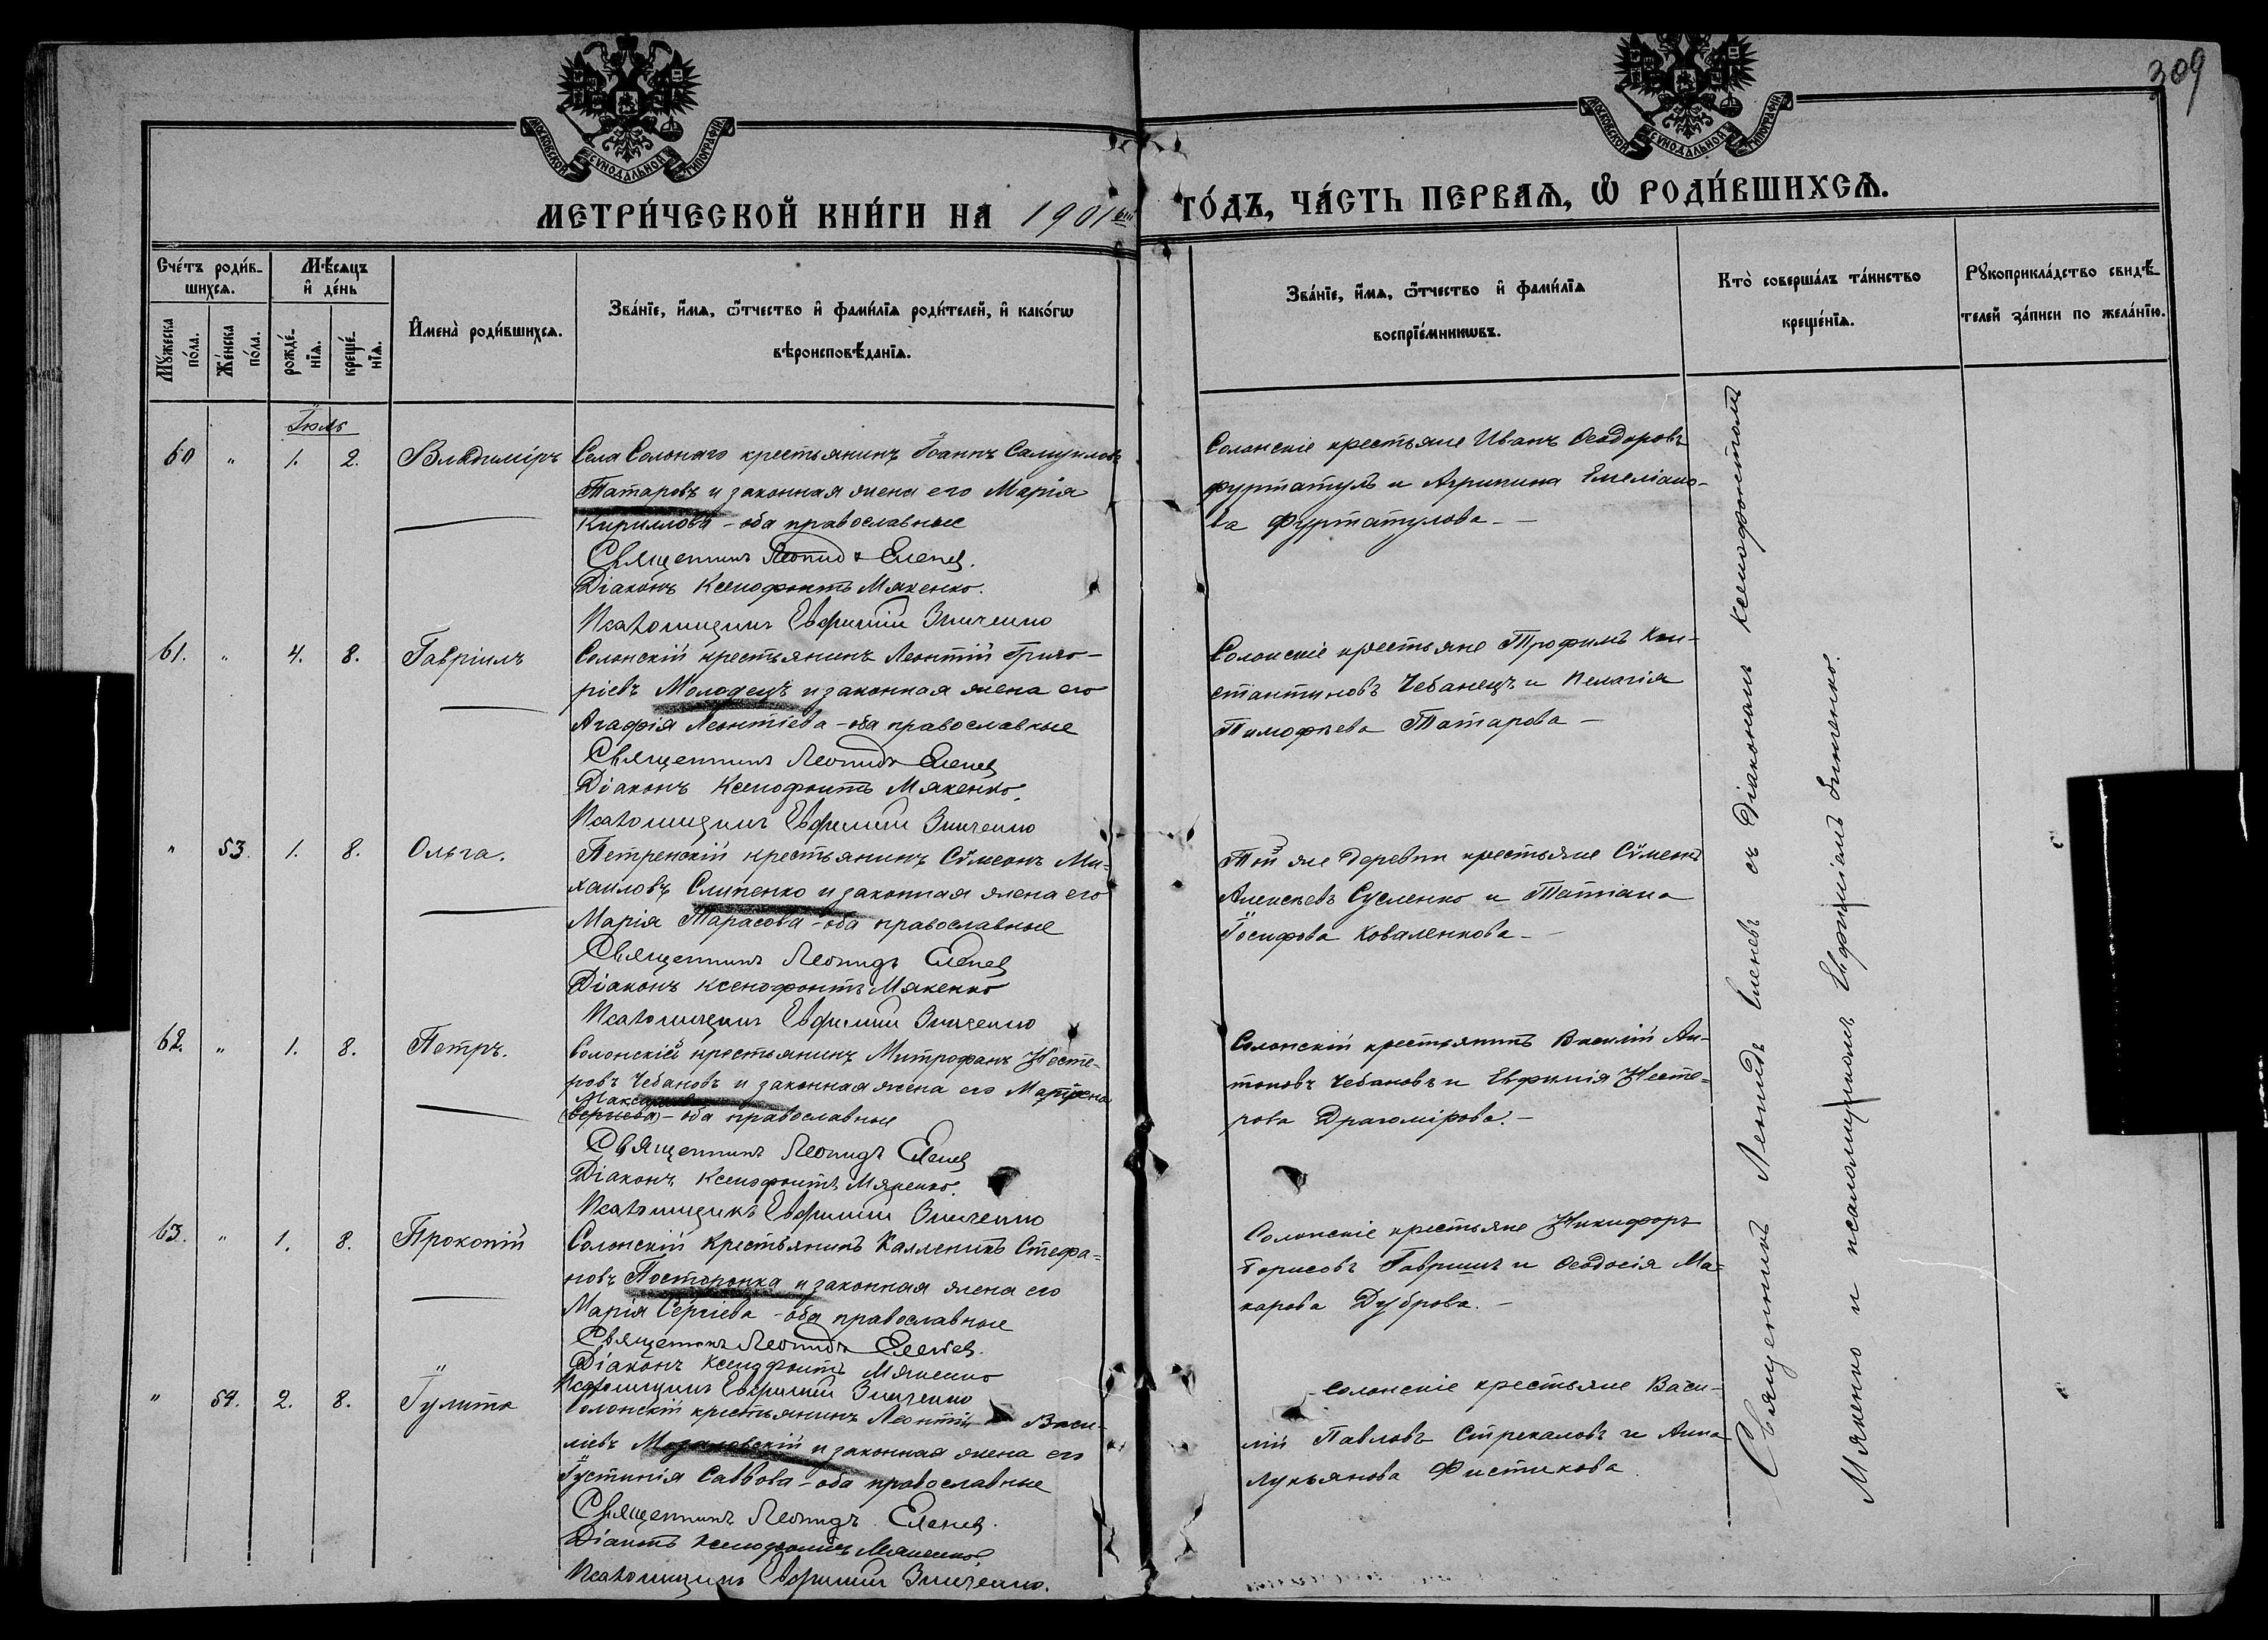 309
МОСКОВСКОЙ СѴНОДАЛЬНОЙ ТИПОГРАФІИ
МОСКОВСКОЙ СѴНОДАЛЬНОЙ ТИПОГРАФІИ
МЕТРИ́ЧЕСКОЙ КНИ́ГИ НА 1901 ГО́ДЪ, ЧА́СТЬ ПЕРВАѦ, Ѡ҆ РОДИ́ВШИХСѦ.
Сче́тъ роди́в-
шихсѧ.
Мꙋ́жеска по́ла.
Же́нска по́ла.
Мѣ́сѧцъ
и҆ де́нь
рожде́-
нїѧ.
креще́-
нїѧ.
И҆мена̀ роди́вшихсѧ.
Зва́нїе, и҆́мѧ, ѻ҆́тчество и҆ фами́лїѧ роди́телей, и҆ како́гѡ
вѣроисповѣ́данїѧ.
Зва́нїе, и҆́мѧ, ѻ҆́тчество и҆ фами́лїѧ
воспрїе́мникѡвъ.
Кто̀ соверша́лъ та́инство
креще́нїѧ.
Рꙋкоприкла́дство свидѣ́-
телей за́писи по жела́нїю.
Іюль
60 " 1. 2. Владиміръ
Села Солонаго крестьянинъ Іоаннъ Самуиловъ
Татаровъ и законная жена его Марія
Кириллова - оба православные
Священникъ Леонид Еленев.
Діаконъ Ксенофонтъ Мякенко.
Псаломщикъ Евфимий Зинченко
Солонскіе крестьяне Иванъ Ѳеодоровъ
Фуртатулъ и Агрипина Емеліано-
ва Фуртатулова -
61. " 4. 8. Гавріилъ
Солонскій крестьянинъ Леонтій Григо-
ріевъ Молодецъ и законная жена его
Агафія Леонтіева - оба православные
Священникъ Леонидъ Еленев
Діаконъ Ксенофонтъ Мякенко.
Псаломщикъ Евфимий Зинченко
Солонскіе крестьяне Трофимъ Кон-
стантиновъ Чебанецъ и Пелагія
Тимофеева Татарова -
" 53. 1. 8. Ольга.
Петренскій крестьянинъ Сѵмеонъ Ми-
хаиловъ Слипенко и законная жена его
Марія Тарасова - оба православные
Священникъ Леонидъ Еленев
Діаконъ Ксенофонтъ Мякенко
Псаломщикъ Евфимий Зинченко
Той же деревни крестьяне Сѵменъ
Алексѣевъ Сусленко и Татіана
Іосифова Коваленкова -
62. " 1. 8. Петръ.
Солонскій крестьянинъ Митрофанъ Несте-
ровъ Чебановъ и законная жена его Матрена
- оба православные
Священникъ Леонидъ Еленев
Діаконъ Ксенофонтъ Мякенко.
Псаломщикъ Евфимий Зинченко
Солонскій крестьянинъ Василій Ан-
тоновъ Чебановъ и Евфимія Несте-
рова Драгомірова. -
63. " 1. 8. Прокопій
Солонскій Крестьянинъ Каленикъ Стефа-
новъ Посторонка и законная жена его
Марія Сергіева - оба православные
Священникъ Леонидъ Еленев.
Діаконъ Ксенофонтъ Мякенко
Псаломщикъ Евфимий Зинченко
Солонскіе крестьяне Никифоръ
Борисовъ Гавришъ и Ѳеодосія Ма-
карова Дуброва. -
" 54. 2. 8. Іулитта
Солонскій крестьянинъ Леонтій Васи-
ліевъ и законная жена его
Іустинія Саввова - оба православные
Священникъ Леонидъ Еленев.
Діаконъ Ксенофонтъ Мякенко.
Псаломщикъ Евфимий Зинченко.
Солонскіе крестьяне Васи-
лій Павловъ Стрекаловъ и Анна
Лукьянова Фистикова
Священникъ Леонидъ Еленевъ съ Діакономъ Ксенофонтомъ
Мякенко и псаломщикомъ Евфиміемъ Зинченко.